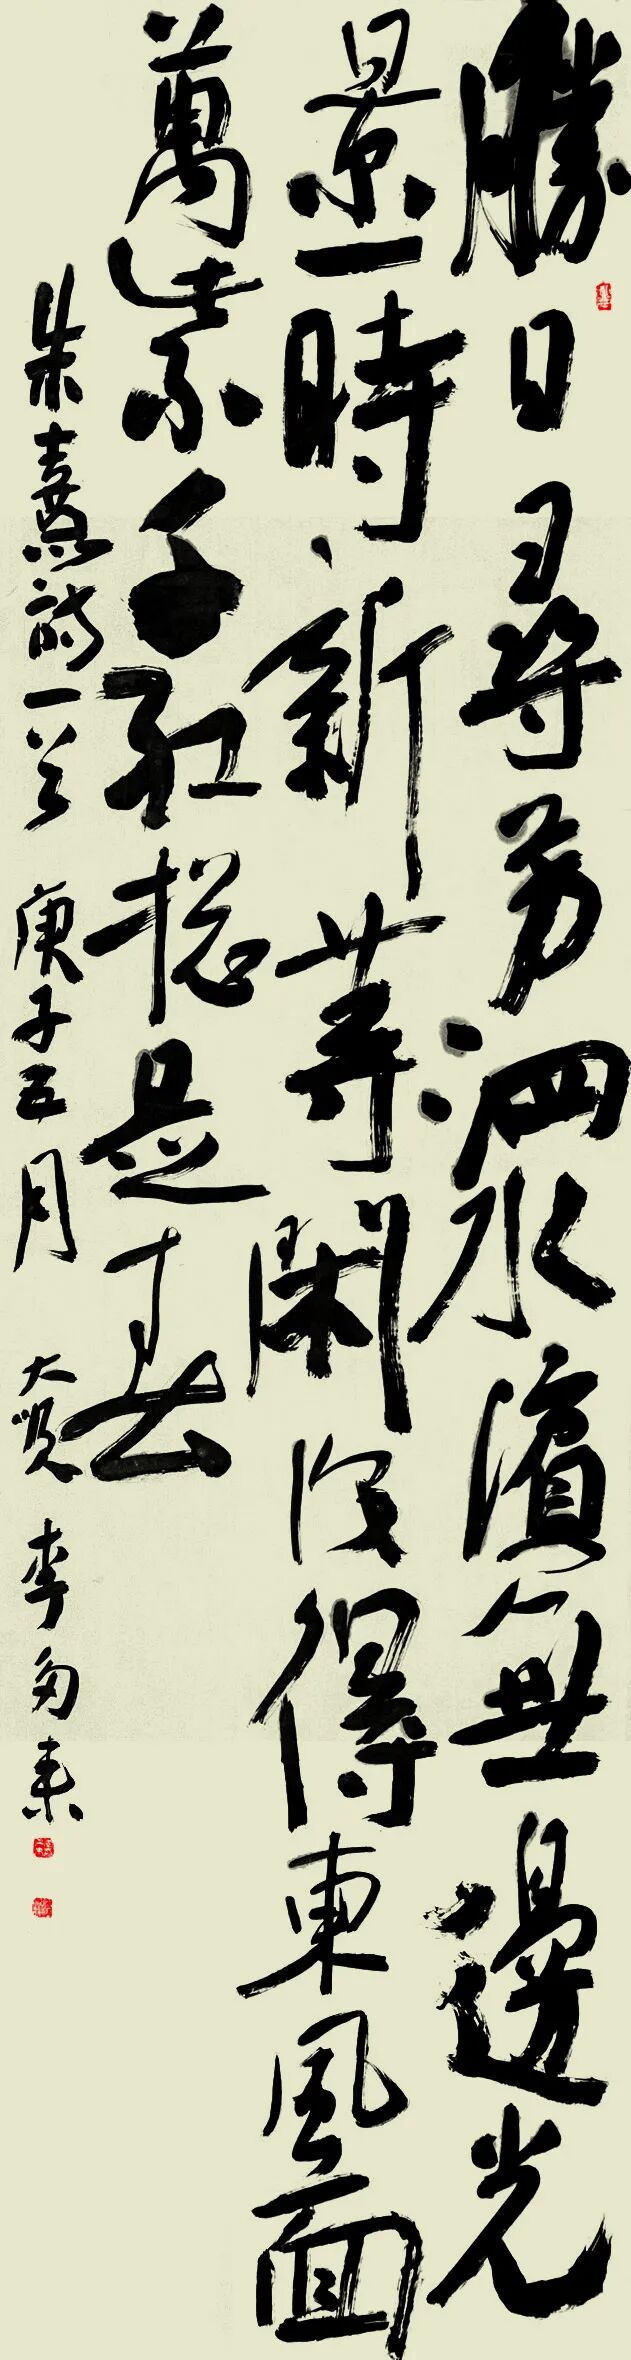 勝日尋芳泗水濱無邊光
景一時新等閑識得東風面
萬紫千紅總是春
朱熹詩一首 庚子五月 大 李